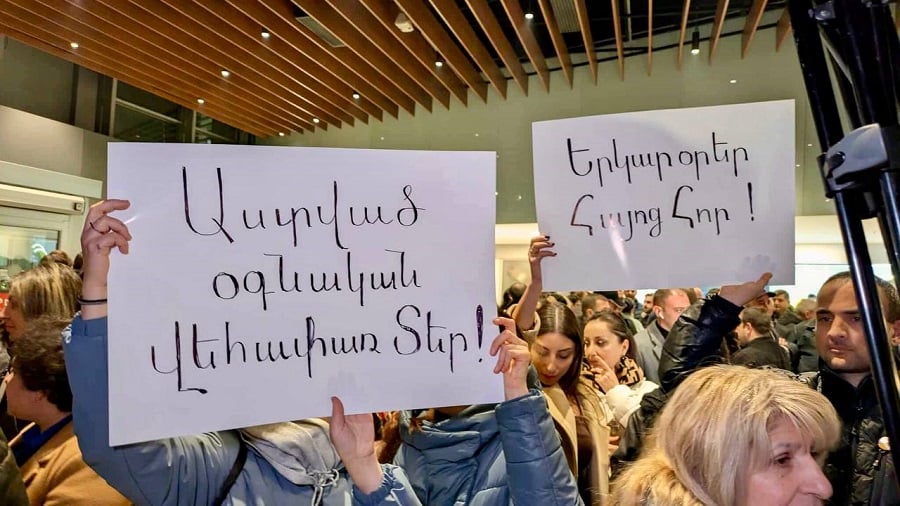 Աստված
օգնական
Վեհափառ Տեր!
Երկար օրեր
Հայոց Հոր !